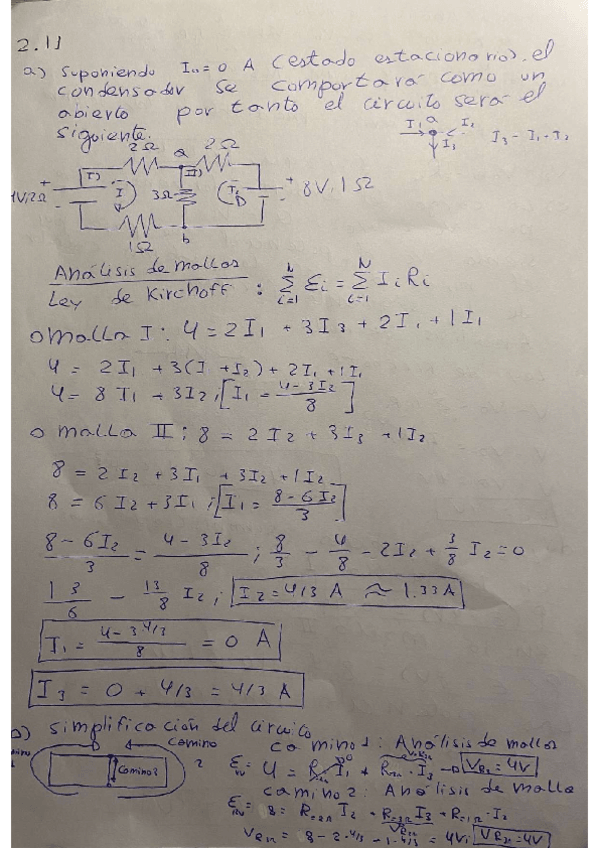 2.11
a) suponiendo I = 0 A (estado estacionario), el
condensador se comportará como un
abierto por tanto el circuito será el
siguiente.
I1 a I2
I3 = I1 + I2
2Ω a 2Ω
I) II)
4V,2Ω + I1 3Ω I2 + 8V,1Ω
1Ω b
Análisis de mallas
Ley de Kirchoff : N Σ i=1 Ɛi = N Σ i=1 Ii Ri
o malla I : 4 = 2I1 + 3I3 + 2I1 + 1I1
4 = 2I1 + 3(I + I2) + 2I1 + 1I1
4 = 8I1 + 3I2 ; [I1 = 4-3I2/8]
o malla II : 8 = 2I2 + 3I3 + 1I2
8 = 2I2 + 3I1 + 3I2 + 1I2
8 = 6I2 + 3I1 ; [I1 = 8-6I2/3]
8-6I2/3 = 4-3I2/8 ; 8/3 - 4/8 - 2I2 + 3/8 I2 = 0
13/6 - 13/8 I2 ; I2 = 4/3 A ≈ 1.33A
I1 = 4-3 4/3/8 = 0 A
I3 = 0 + 4/3 = 4/3 A
b) simplificación del circuito
camino camino 1: Análisis de mallas
camino 2 2 4 = I1 + I3 = 4V
camino 2: Análisis de malla
8 = I2 + I3 + I2
= 8 - 2·4/3 - 1·4/3 = 4V; = 4V